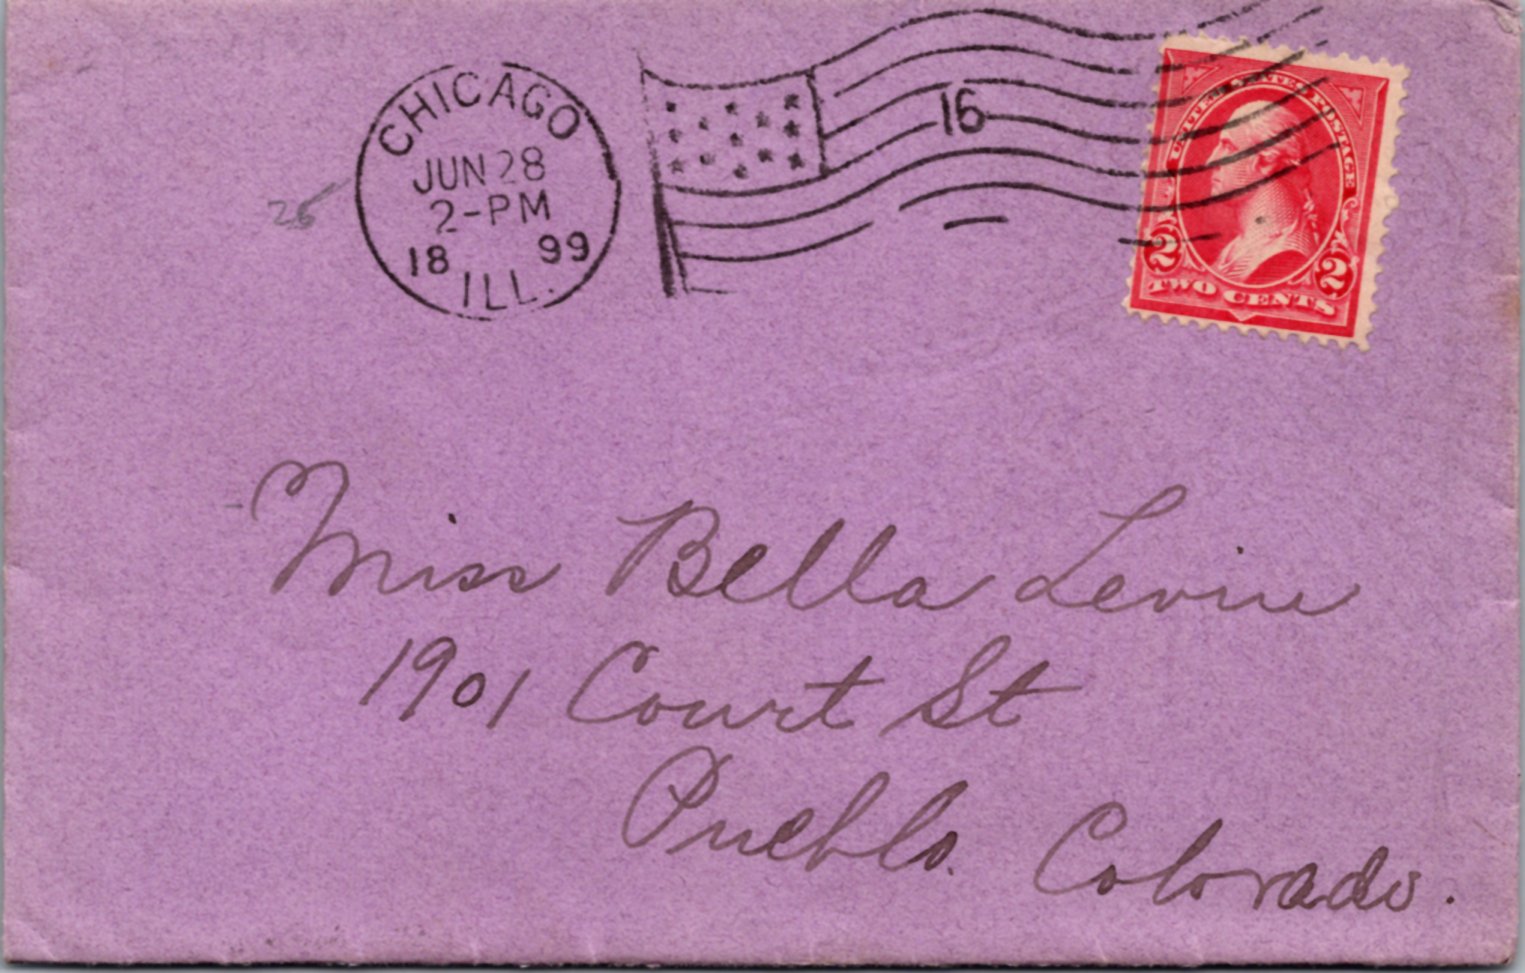 CHICAGO
JUN 28
2-PM
18 99
ILL.
16
UNITED STATES POSTAGE
2 2
TWO CENTS
26
Miss Bella Levine
1901 Court St
Pueblo. Colorado.